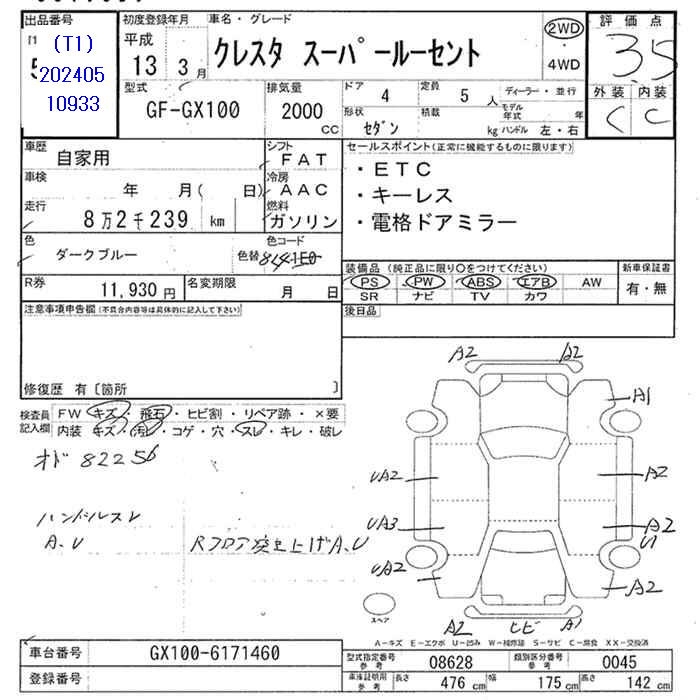 出品番号
(T1)
202405
10933
初度登録年月
平成
13 3月
車名・グレード
クレスタ スーパールーセント
2WD
・
4WD
評価点
3.5
外装 内装
C C
型式
GF-GX100
排気量
2000
cc
ドア
4
定員
5 人
ディーラー・並行
モデル年式 年
形状
セダン
積載
kg
ハンドル 左・右
車歴
自家用
シフト
FAT
車検
年 月( 日)
冷房
AAC
走行
8万2千239 km
燃料
ガソリン
色
ダークブルー
色替
色コード
8L4 1E0
R券
11,930 円
名変期限
月 日
セールスポイント(正常に機能するものに限ります)
・ETC
・キーレス
・電格ドアミラー
装備品(純正品に限り○をつけてください)
新車保証書
PS PW ABS エアB AW
SR ナビ TV カワ
有・無
注意事項申告欄(不具合内容等は具体的に記入して下さい)
後日品
修復歴 有〔箇所 〕
検査員
記入欄
FW キズ・飛石・ヒビ割・リペア跡・×要
内装 キズ・汚レ・コゲ・穴・スレ・キレ・破レ
オド 82256
ハンドルスレ
A、U
Rフロア突き上げA、U
A2 A2
A1
UA2 A2
UA3 A2
U1
UA2 A2
A2 ヒビ A1
スペア
A-キズ E-エクボ U-凹み W-補修跡 S-サビ C-腐食 XX-交換済
車台番号
GX100-6171460
登録番号
型式指定番号
参考
08628
類別区分番号
参考
0045
車庫証明用
参考
長さ 476 cm
幅 175 cm
高さ 142 cm